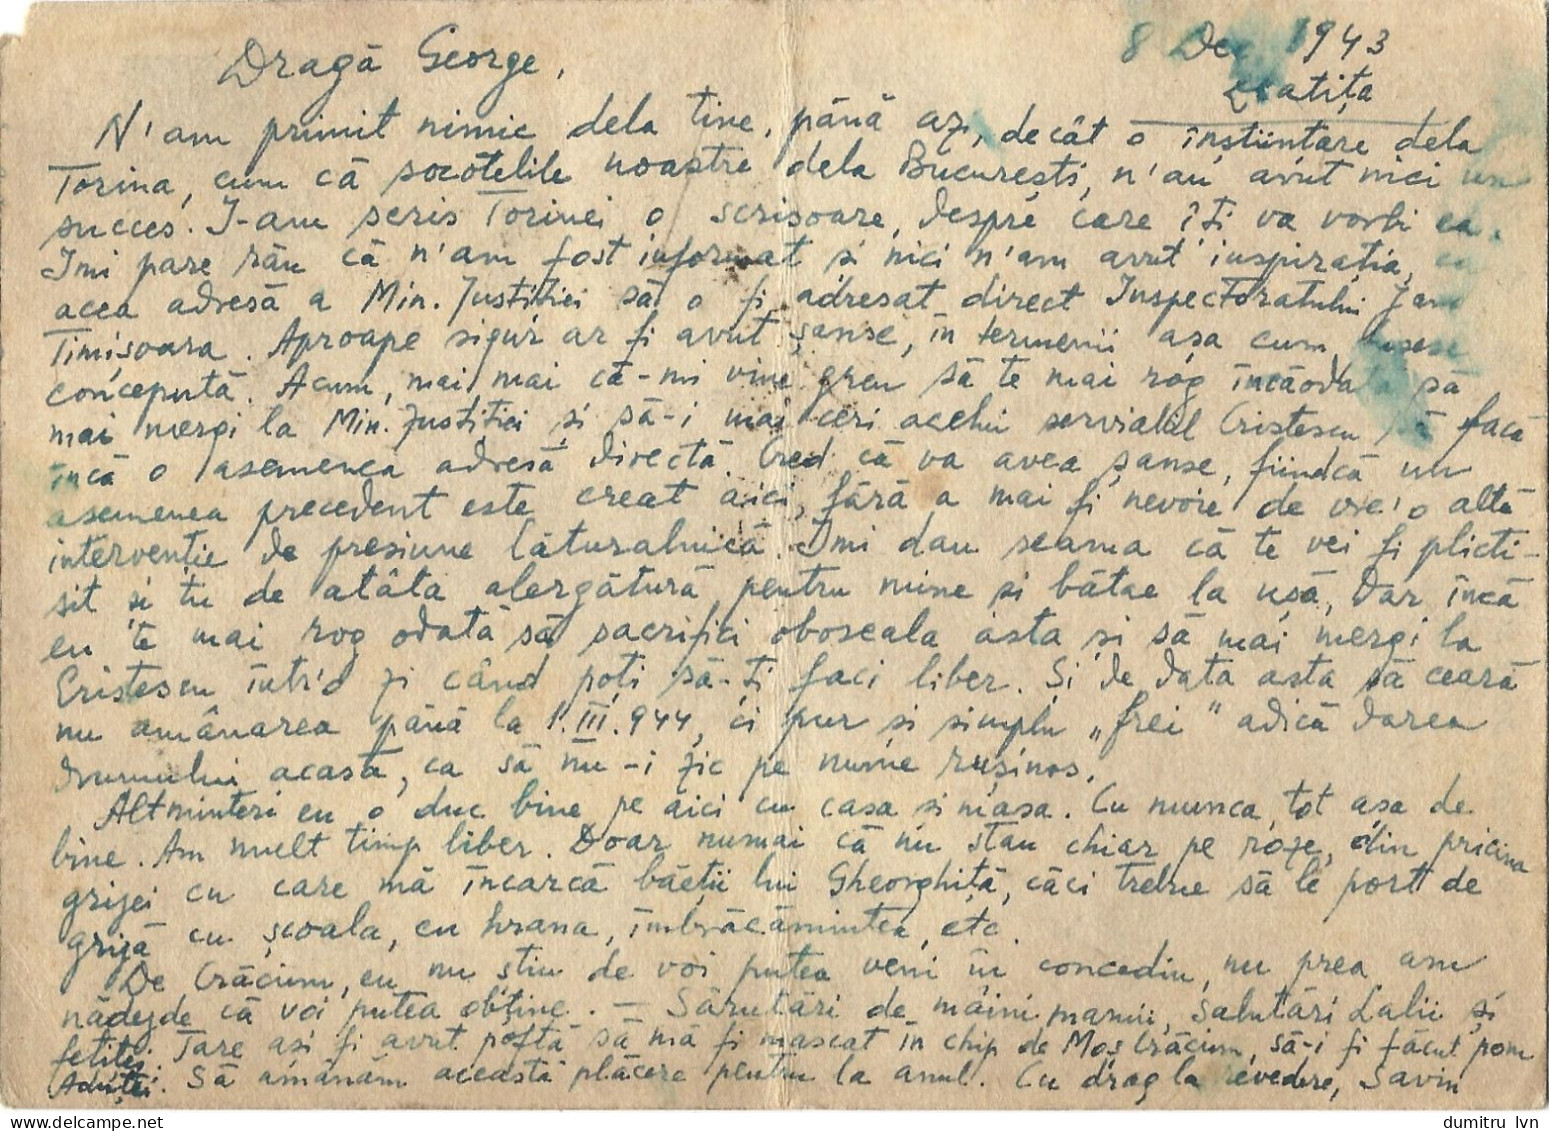 8 Dec 1943
Dragă George,
Zlatița
N'am primit nimic dela tine, până az, decât o înștiințare dela
Torina, cum că socotelile noastre dela București, n'au avut nici un
succes. I-am scris Torinei o scrisoare, despre care îți va vorbi ea.
Imi pare rău că n'am fost informat și nici n'am avut inspirația, ca
acea adresă a Min. Justiției să o fi adresat direct Inspectoratului Jand
Timișoara. Aproape sigur ar fi avut șanse, în termenii așa cum fusese
concepută. Acum, mai mai că-mi vine greu să te mai rog încăodată să
mai mergi la Min. Justiției și să-i mai ceri acelui serviabil Cristescu să facă
încă o asemenea adresă directă. Cred că va avea șanse, fiindcă un
asemenea precedent este creat aici, fără a mai fi nevoie de vre'o altă
intervenție de presiune lăturalnică. Imi dau seama că te vei fi plicti-
sit și tu de atâta alergătură pentru mine și bătae la ușă, dar încă
eu te mai rog odată să sacrifici oboseala asta și să mai mergi la
Cristescu într'o zi când poți să-ți faci liber. Și de data asta să ceară
nu amânarea până la 1.III.944, ci pur și simplu „frei" adică darea
drumului acasă, ca să nu-i zic pe nume rușinos.
Altminteri eu o duc bine pe aici cu casa și masa. Cu munca, tot așa de
bine. Am mult timp liber. Doar numai că nu stau chiar pe roze, din pricina
grijei cu care mă încarcă băeții lui Gheorghiță, căci trebue să le port de
grijă cu școala, cu hrana, îmbrăcămintea, etc.
De Crăciun, eu nu știu de voi putea veni în concediu, nu prea am
nădejde că voi putea obține. — Sărutări de mâini mamii, Salutări Lalii și
fetiței Tare aș fi avut poftă să mă fi mascat în chip de Moș Crăciun, să-i fi făcut pom
Aduiței. Să amânăm această plăcere pentru la anul. Cu drag la revedere, Savin
dumitru lvn